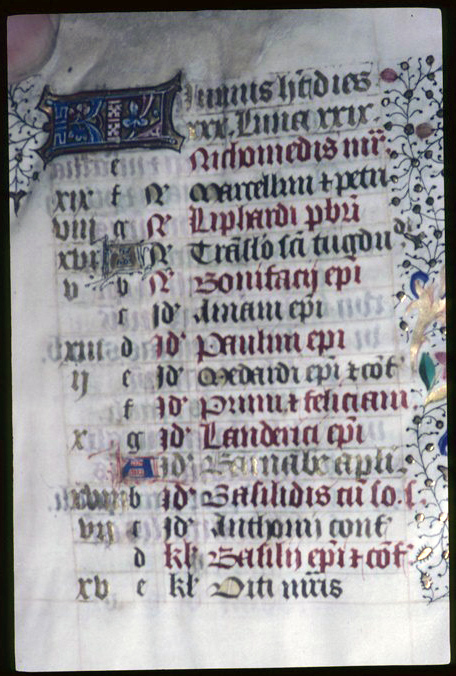 Iunius hẽt dies
xxx. Luna xxix
e Nichomedis mr̃.
xix f N Marcellini ⁊ petri
viii g N Liphardi pbr̃i
xvi A N Trãslo sc̃i
v b N Bonifacij epi
c Id'
xiii d Id' Paulini epi
ij e Id' Medardi epĩ ⁊ cõf
f Id' Primi ⁊ feliciani
x g Id' Landerici epĩ
A Id' Barnabe apli.
b Id' Basilidis cũ so. s.
vii c Id' Anthonij conf
d kl̃ Basilij epĩ ⁊ cõf
xv e kl̃ Viti mr̃is